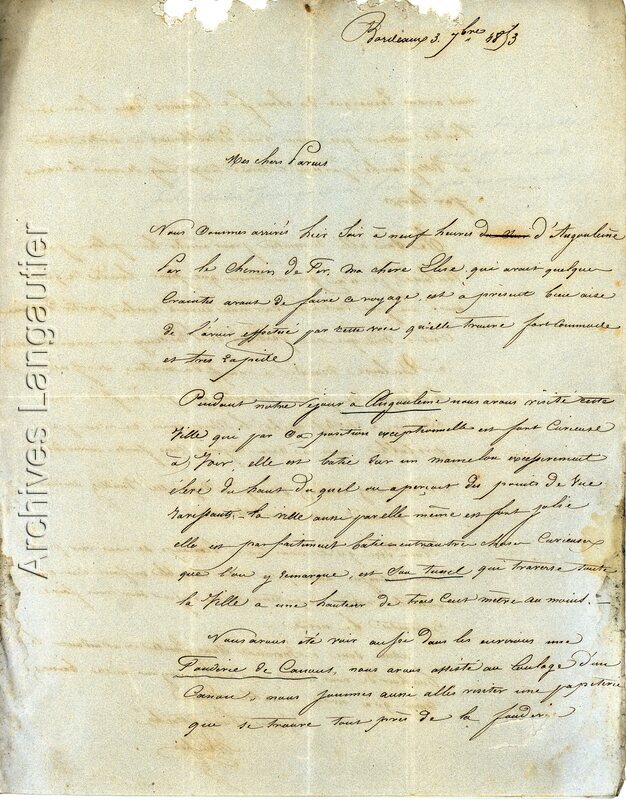 Bordeaux 3. 7bre 1853
Mes chers Parens
Nous sommes arrivés hier soir à neuf heures d'Angoulême
Par le Chemin de Fer, ma chere Elise qui avait quelque
Craintes avant de faire ce voyage, est à présent bien aise
de l'avoir effectué par cette voie qu'elle trouve fort commode
et très rapide
Pendant notre séjour à Angoulême nous avons visité cette
Ville qui par sa position exceptionnelle est fort Curieuse
à Voir, elle est batie sur un mamelon excessivement
élevé du haut du quel on aperçoit des points de vue
ravissants, - la ville aussi par elle même est fort jolie
elle est parfaitement batie entr'autre chose Curieuse
que l'on y remarque, est Son tunel qui traverse toute
la Ville a une hauteur de trois cent mètre au moins. -
Nous avons été voir aussi dans les environs une
Fonderie de Canons, nous avons assisté au Coulage d'un
Canon, nous sommes aussi allés visiter une papeterie
qui se trouve tout près de la fonderie
Archives Langautier